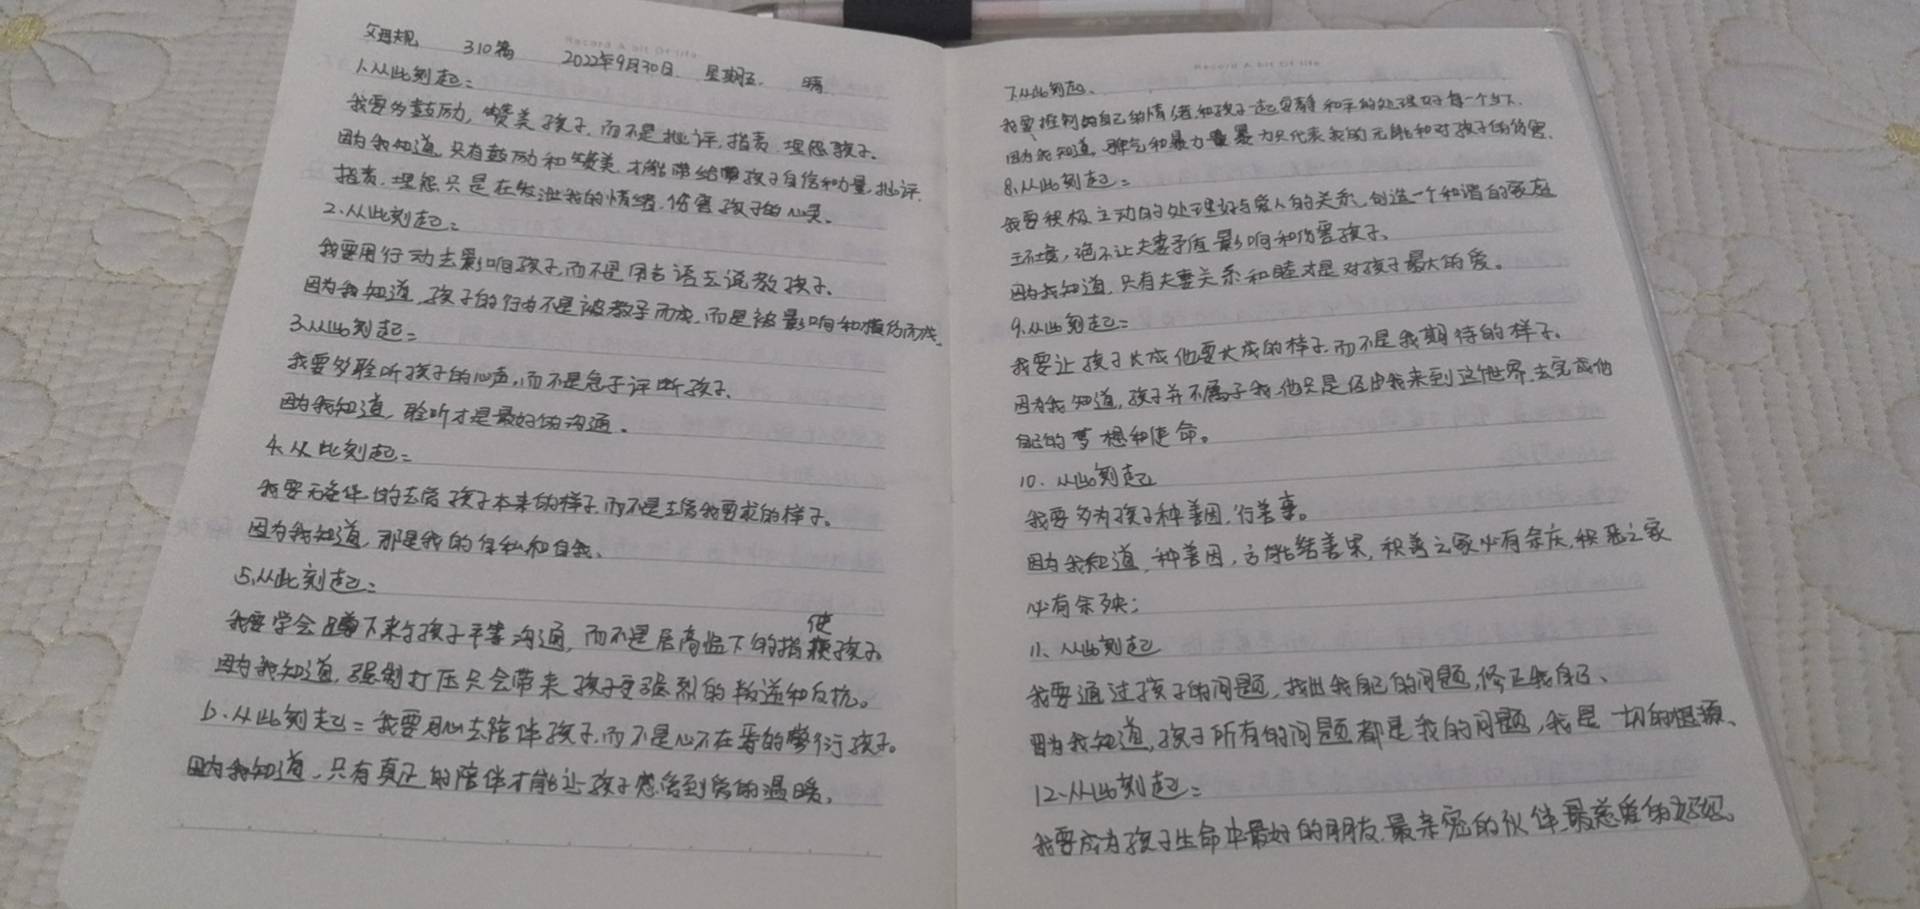 父母规 310篇 2022年9月30日. 星期五. 晴
Record A bit Of life
1.从此刻起:
我要多鼓励,赞美孩子.而不是批评,指责,埋怨孩子.
因为我知道,只有鼓励和赞美,才能带给孩子自信和力量,批评.
指责.埋怨只是在发泄我的情绪.伤害孩子的心灵.
2.从此刻起:
我要用行动去影响孩子,而不是用言语去说教孩子.
因为我知道,孩子的行为不是被教导而成,而是被影响和模仿而成.
3.从此刻起:
我要多聆听孩子的心声,而不是急于评断孩子.
因为我知道,聆听才是最好的沟通.
4.从此刻起:
我要无条件的去爱孩子本来的样子,而不是去爱我要求的样子.
因为我知道,那是我的自私和自我.
5.从此刻起:
我要学会蹲下来与孩子平等沟通,而不是居高临下的指使孩子.
因为我知道,强制打压只会带来孩子更强烈的叛逆和反抗。
6.从此刻起:我要用心去陪伴孩子.而不是心不在焉的敷衍孩子.
因为我知道,只有真正的陪伴才能让孩子感受到爱的温暖.
Record A bit Of life
7.从此刻起.
我要控制的自己的情绪,和孩子一起安静和平的处理好每一个当下.
因为我知道,脾气和暴力暴力只代表我的无能和对孩子的伤害.
8.从此刻起:
我要积极主动的处理好与爱人的关系,创造一个和谐的家庭
环境,绝不让夫妻矛盾影响和伤害孩子.
因为我知道,只有夫妻关系和睦才是对孩子最大的爱。
9.从此刻起:
我要让孩子长成他要长成的样子,而不是我期待的样子.
因为我知道,孩子并不属于我,他只是经由我来到这个世界,去完成他
自己的梦想和使命。
10.从此刻起
我要多为孩子种善因,行善事。
因为我知道,种善因,方能结善果,积善之家必有余庆,积恶之家
必有余殃;
11.从此刻起
我要通过孩子的问题,找出我自己的问题,修正我自己.
因为我知道,孩子所有的问题都是我的问题,我是一切的根源.
12.从此刻起:
我要成为孩子生命中最好的朋友,最亲密的伙伴,最慈爱的妈妈。